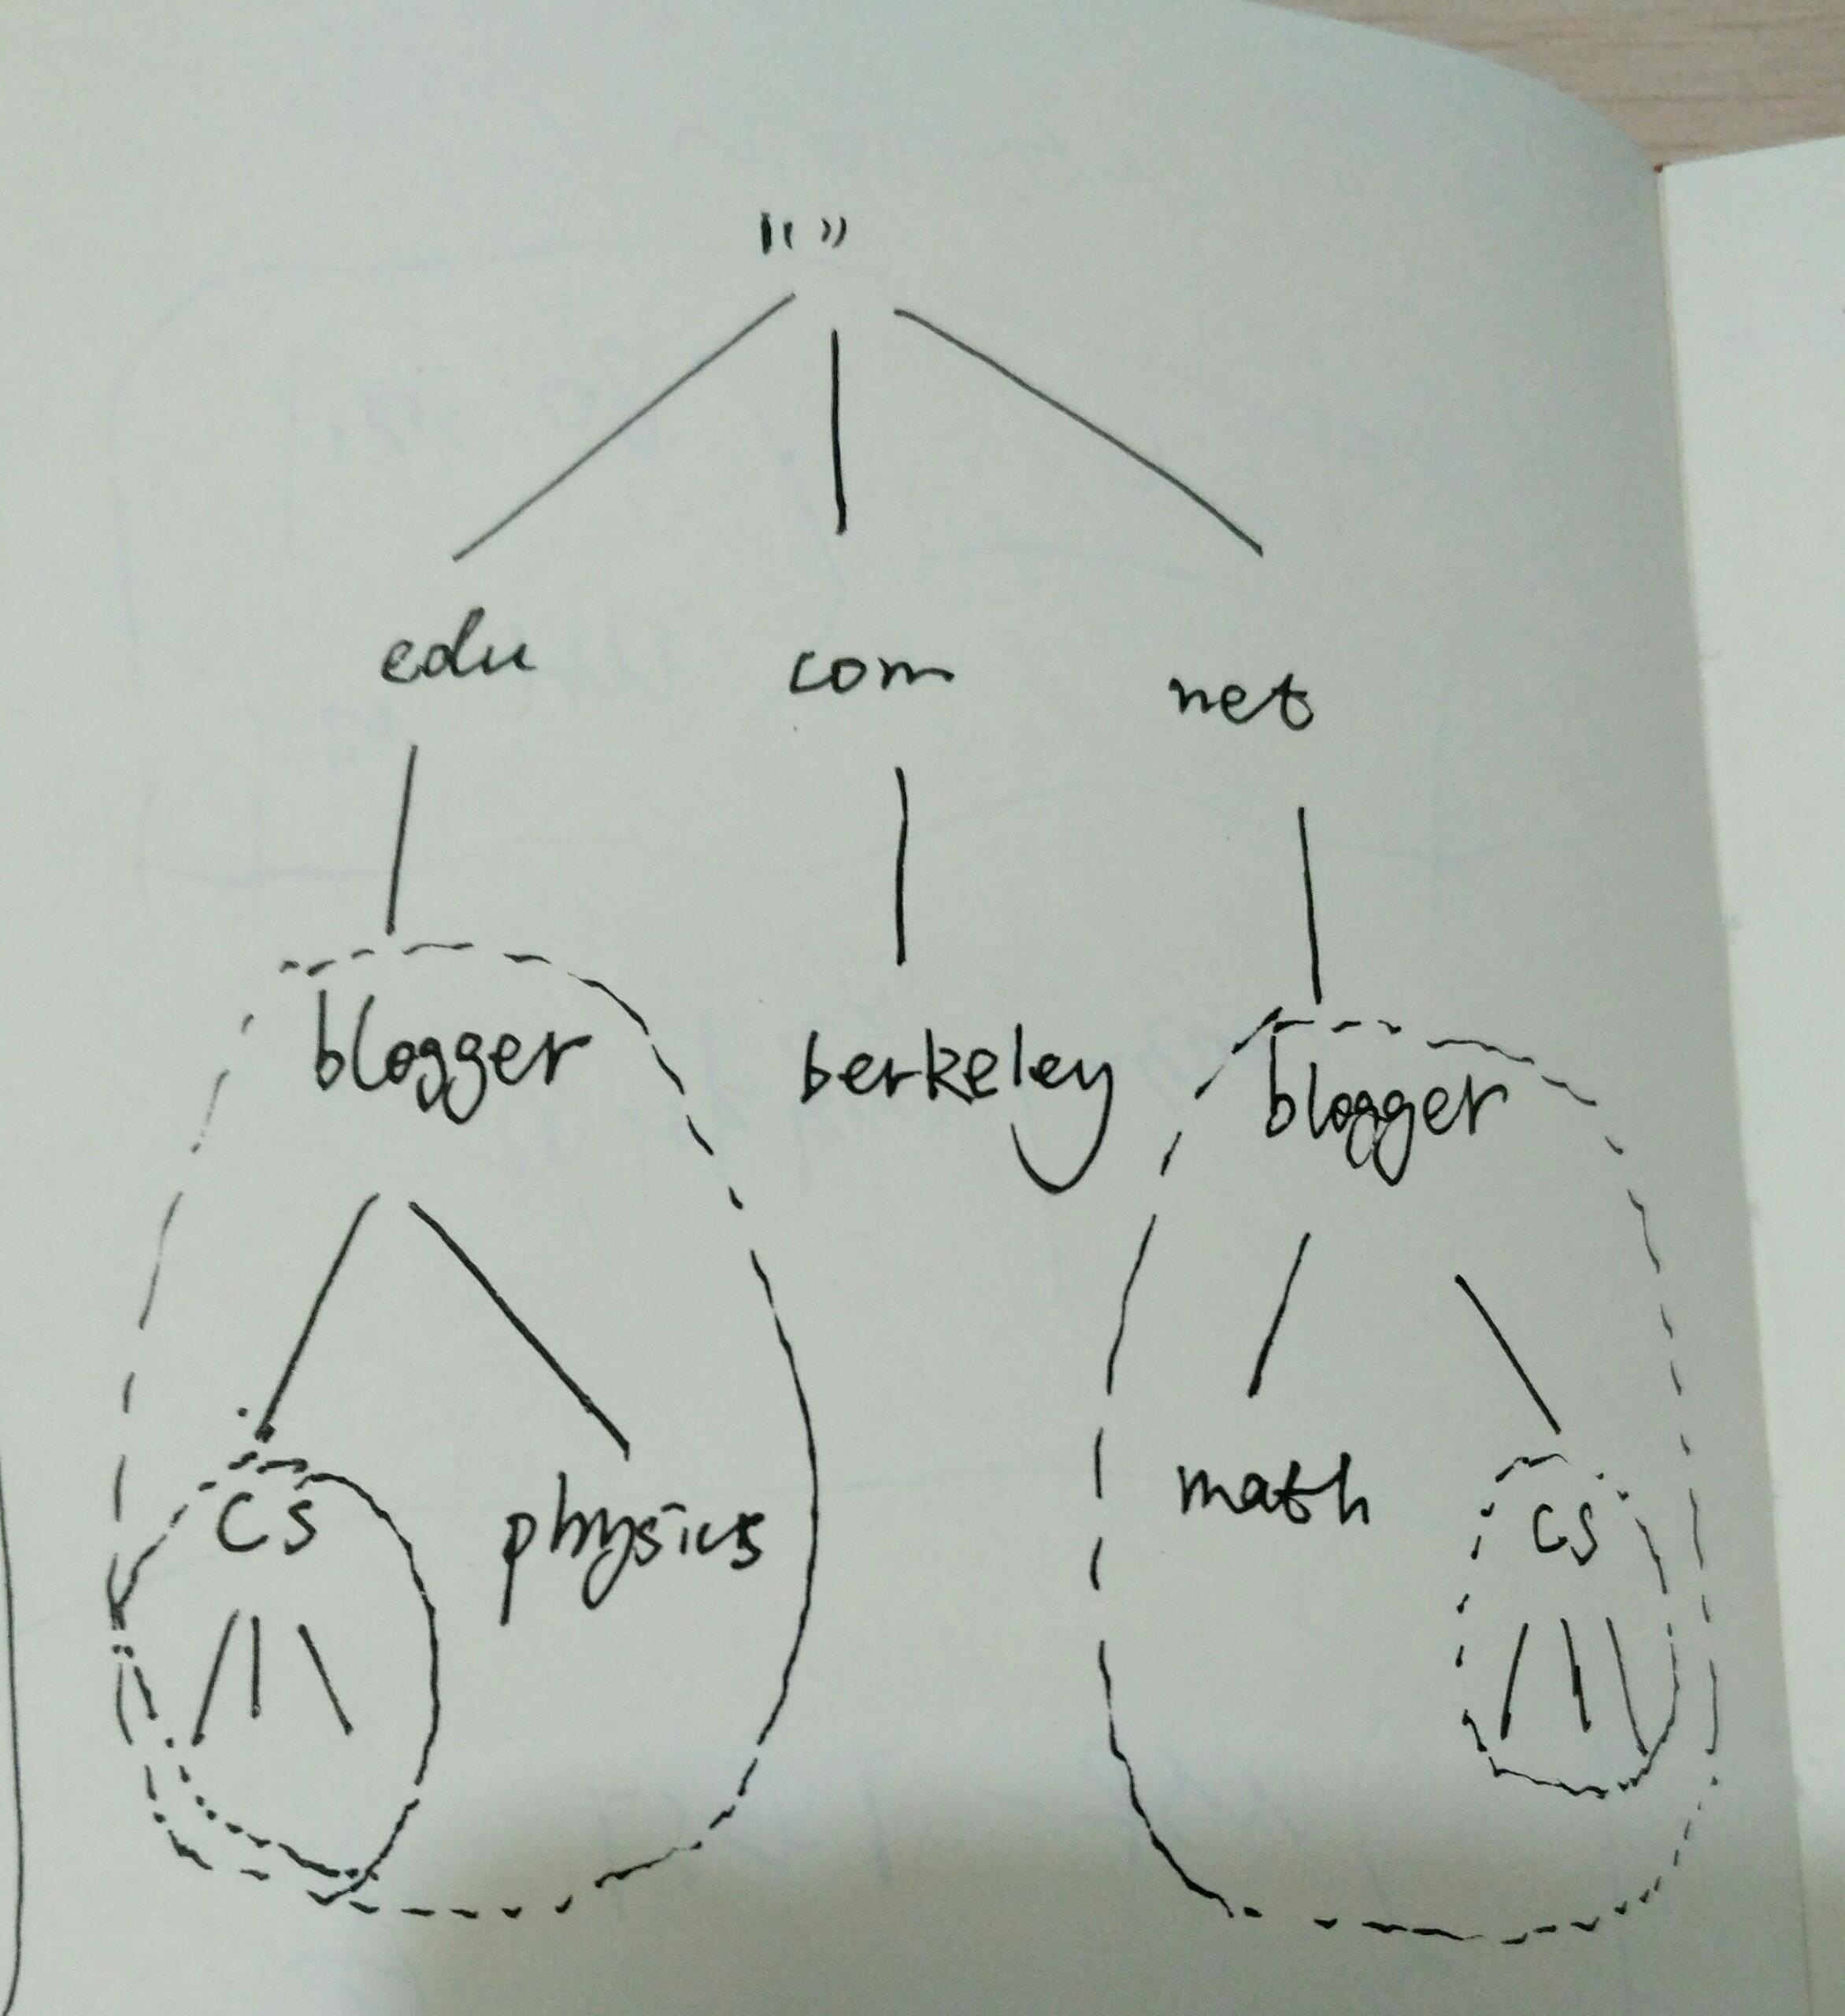 “ ”
edu com net
blogger berkeley blogger
cs physics math cs